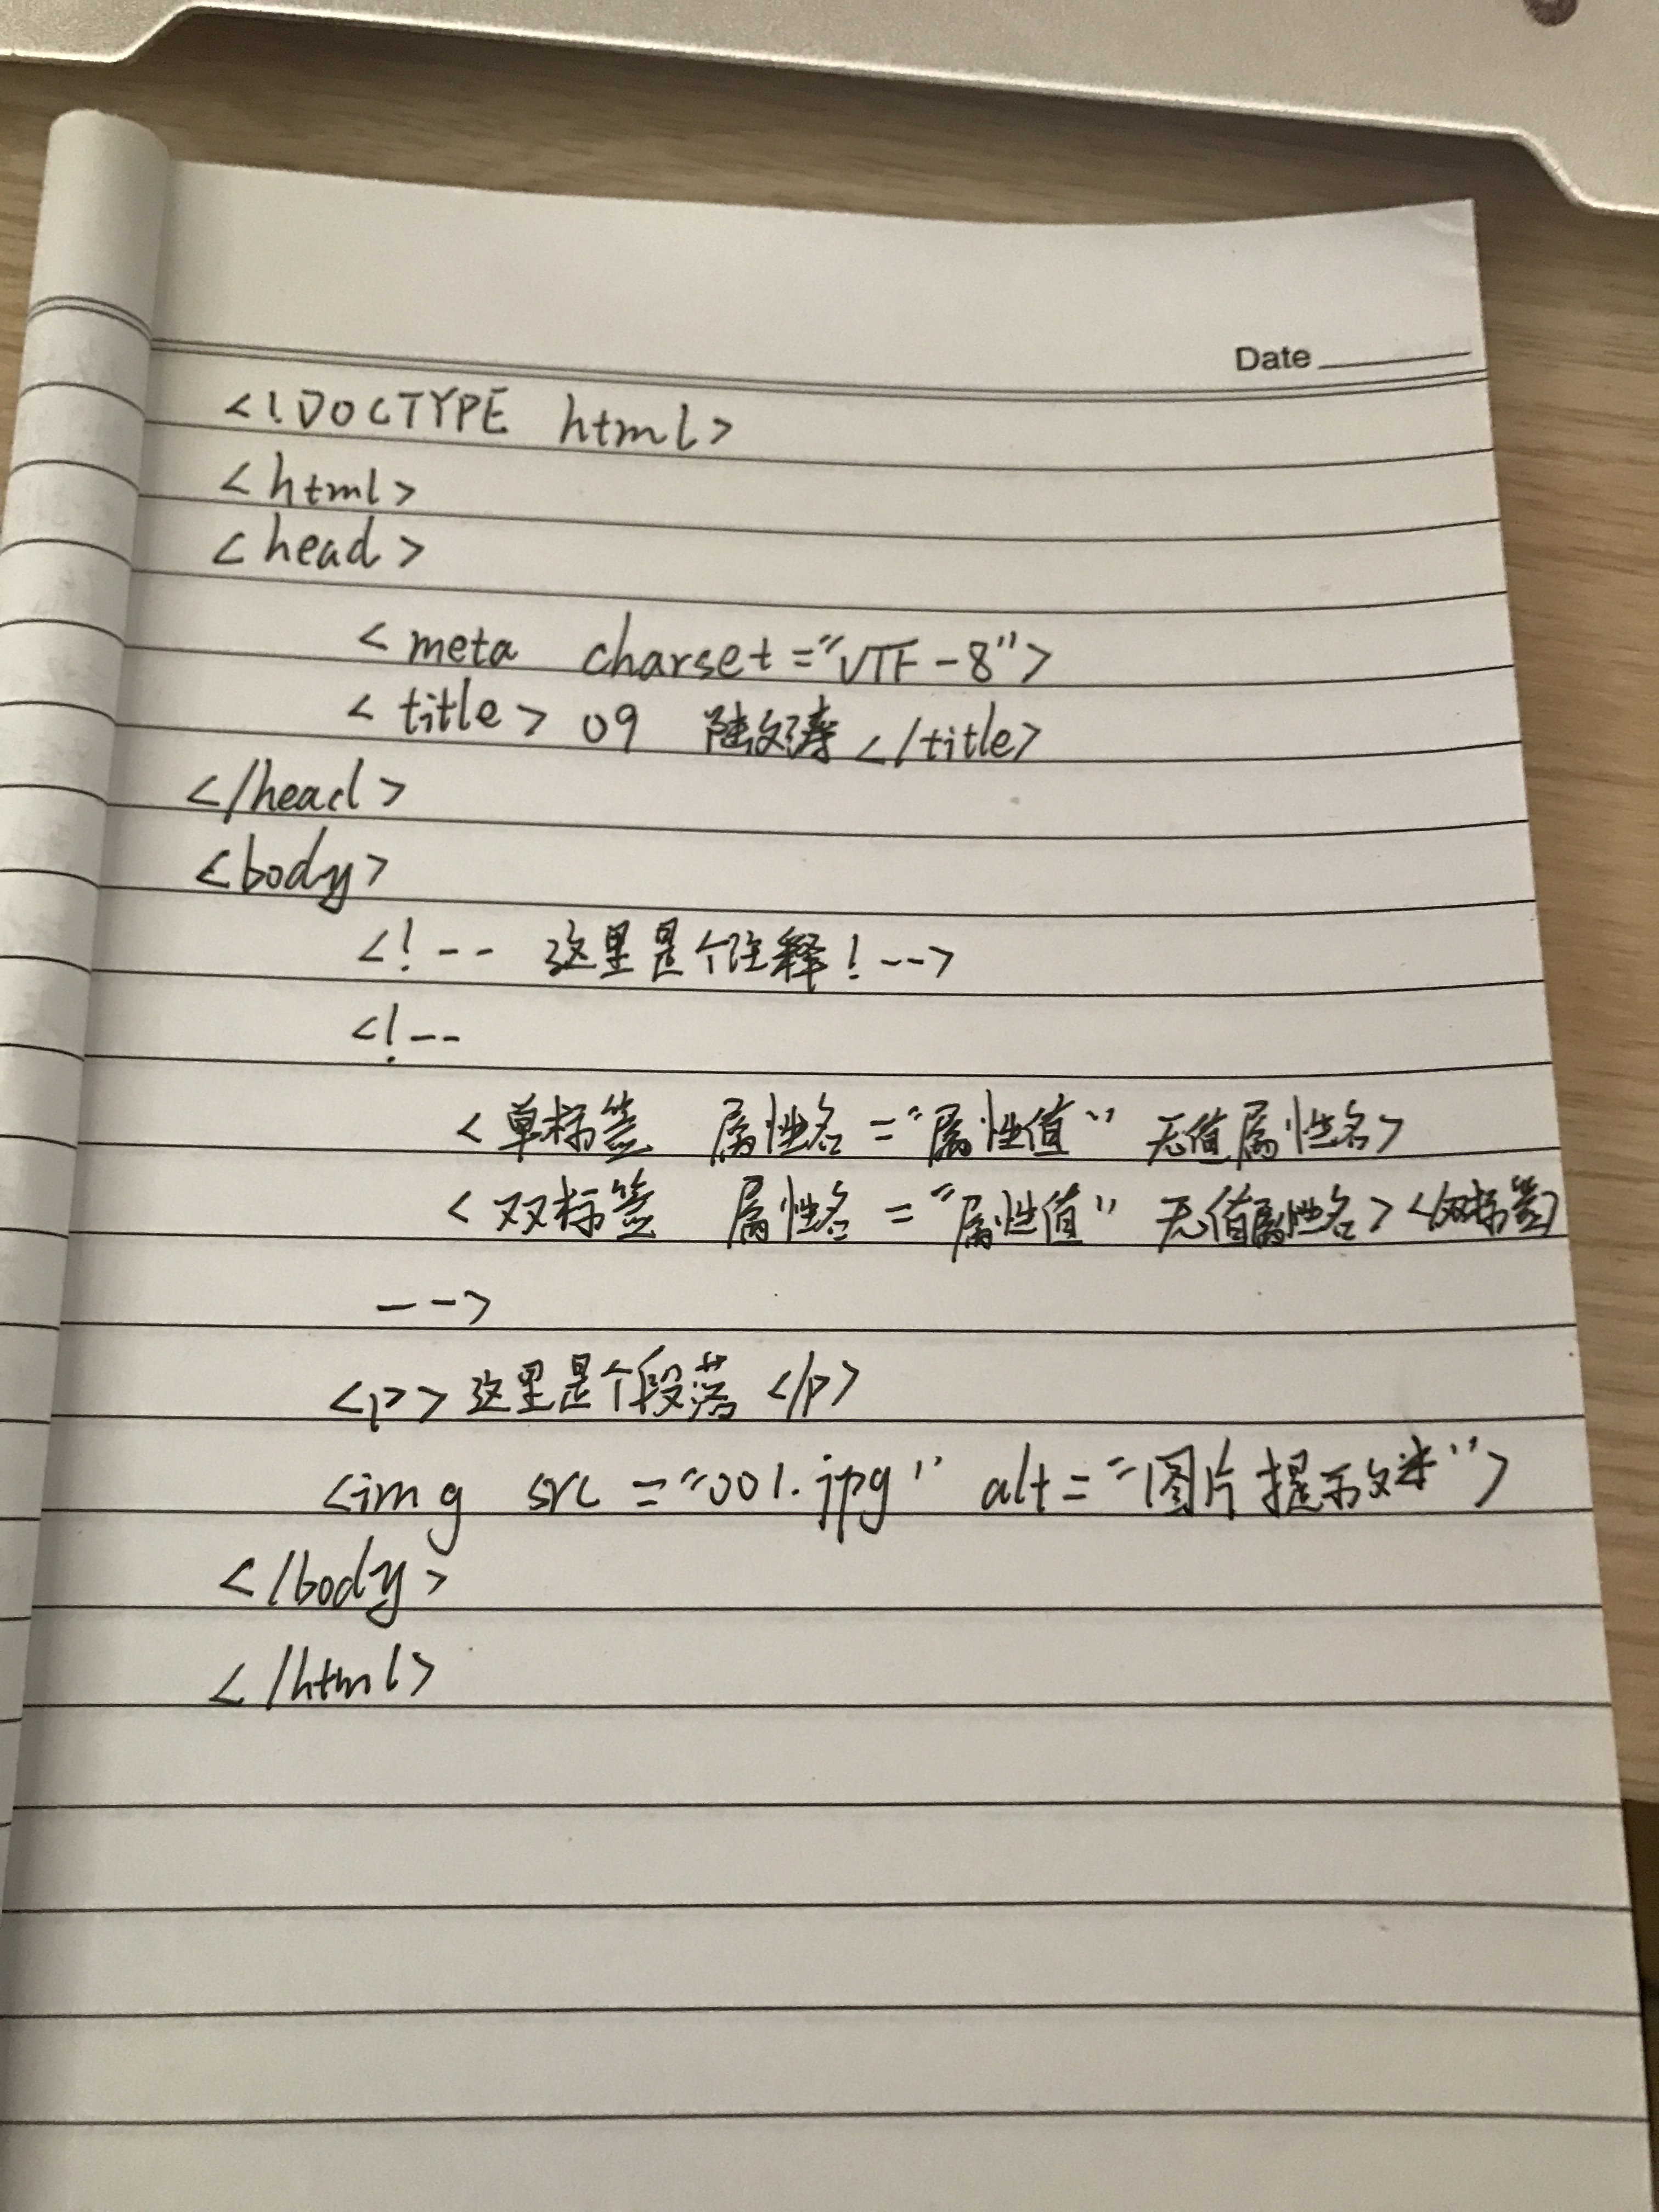 Date
<!DOCTYPE html>
<html>
<head>
<meta charset="UTF-8">
<title> 09 陆文涛 </title>
</head>
<body>
<!-- 这里是个注释! -->
<!--
<单标签 属性名="属性值" 无值属性名>
<双标签 属性名="属性值" 无值属性名></双标签>
-->
<p>这里是个段落</p>
<img src="001.jpg" alt="图片提示文本">
</body>
</html>